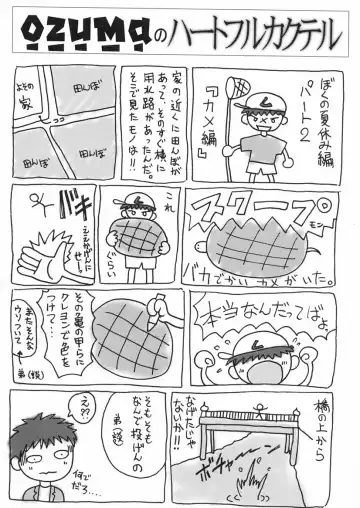 OZUMAのハートフルカクテル
ぼくの夏休み編
パート2
『カメ編』
家の近くに田んぼが
あって、そのすぐ横に
用水路があったんだ。
そこで見たモノは!!
よその
家
田んぼ
田んぼ
田んぼ
スクープ
モン
バカでかいカメがいた。
これ
ぐらい
バキ
ええかげんに
せー!
本当なんだってばよ。
その亀の甲らに
クレヨンで色を
つけて…
またそんな
ウソついて
弟(談)
橋の上から
なげたじゃ
ないか!!
ボチャーーン
そもそも
なんで投げんの
弟(談)
え??
何で
だろ…